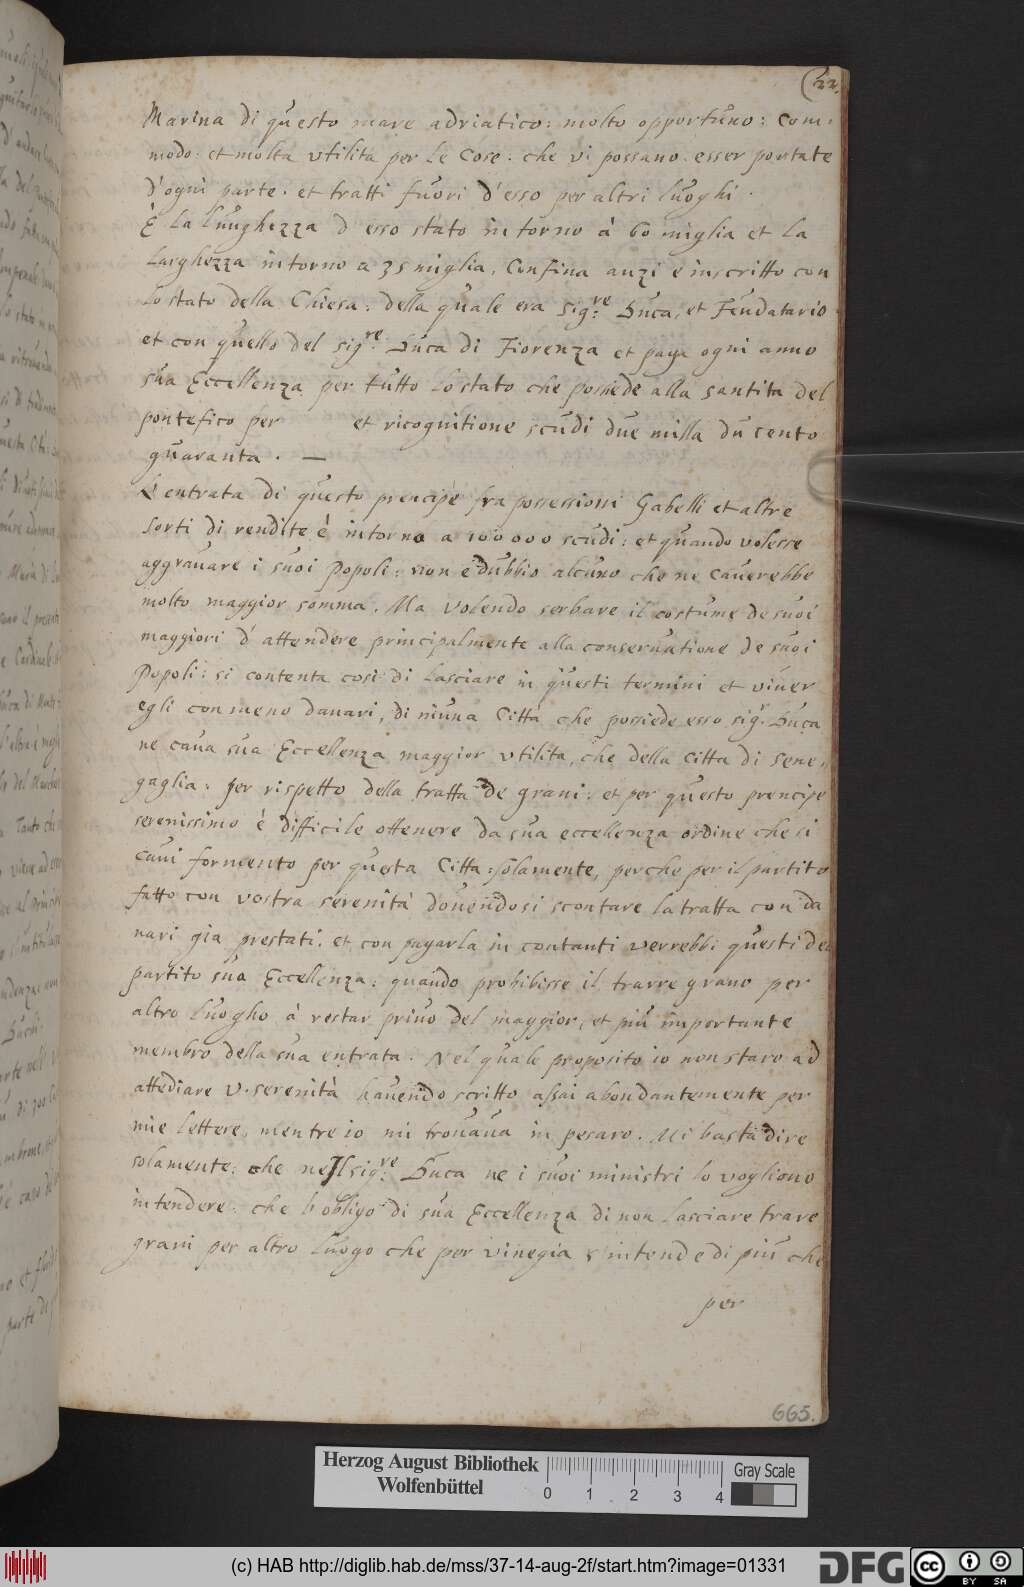 (22.
Marina di questo mare adriatico: molto opportuno: Com-
modo: et molta vtilita per le Cose. che vi possano. esser portate
d'ogni parte. et tratti fuori d'esso per altri luoghi.
È la lunghezza d esso stato intorno à 60 miglia et la
Larghezza intorno a 35 miglia, Confina anzi è inscritto con
lo stato della Chiesa: della quale era sig:re Duca, et Feudatario
et con quello del sig:re Duca di Fiorenza et paga ogni anno
sua Eccellenza per tutto lo stato che possiede alla santita del
pontefico per et ricognitione scudi due milla du cento
quaranta. —
L'entrata di questo prencipe fra possessioni Gabelli et altre
sorti di rendite è intorno a 100000 scudi: et quando volesse
aggrauare i suoi Popoli: non è dubbio alcuno che ne cauerebbe
molto maggior somma. Ma volendo serbare il costume de suoi
maggiori d'attendere principalmente alla conseruatione de suoi
Popoli: si contenta cosi di lasciare in questi termini et viuer
egli con meno danari, di niuna Citta che possiede esso sigr. Duca
ne caua sua Eccellenza maggior vtilita, che della Citta di Sene-
gaglia: per rispetto della tratta de grani: et per questo prencipe
serenissimo è difficile ottenere da sua eccellenza ordine che si
caui formento per questa Citta: solamente, perche per il partito
fatto con vostra serenità douendosi scontare la tratta con da
nari gia prestati. et con pagarla in contanti verrebbi questi del
partito sua Eccellenza: quando prohibisse il trarre grano per
altro luogho à restar priuo del maggior, et più importante
membro della sua entrata. Nel quale proposito io non staro ad
attediare V. serenità hauendo scritto assai abondantemente per
mie lettere, mentre io mi trouaua in pesaro. Mi basta dire
solamente: che ne Il sig:re Duca ne i suoi ministri lo vogliono
intendere. che l'obligo di sua Eccellenza di non lasciare trare
grani per altro luogo che per vinegia s'intende di più che
per
665.
Herzog August Bibliothek
Wolfenbüttel
0 1 2 3 4
Gray Scale
(c) HAB http://diglib.hab.de/mss/37-14-aug-2f/start.htm?image=01331
DFG
cc
BY SA